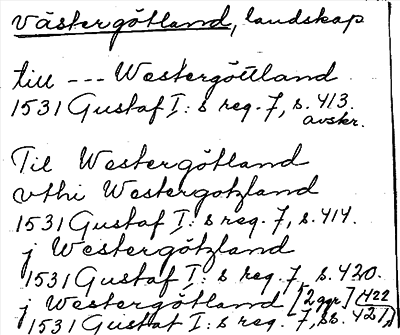 Västergötland, landskap
till --- Westergöttland
1531 Gustaf I:s reg. 7, s. 413.
avskr.
Til Westergötland
vthi Westergotzland
1531 Gustaf I:s reg. 7, s. 414.
j Westergötzland
1531 Gustaf I:s reg. 7, s. 420.
j Westergötland [2 ggr] (422
1531 Gustaf I:s reg. 7, ss. 421,